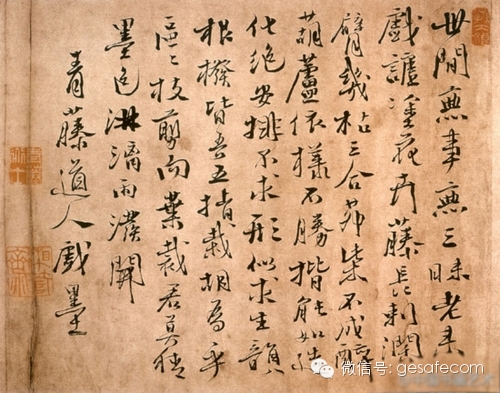 世間無事無三昧老來
戲謔塗花卉藤長刺闊
臂幾枯三合茅柴不成醉
葫蘆依樣不勝揩能如造
化絕安排不求形似求生韻
根撥皆吾五指栽胡為乎
區區枝剪而葉裁君莫猜
墨色淋漓雨潑開
青藤道人戲墨
微信号: gesafecom